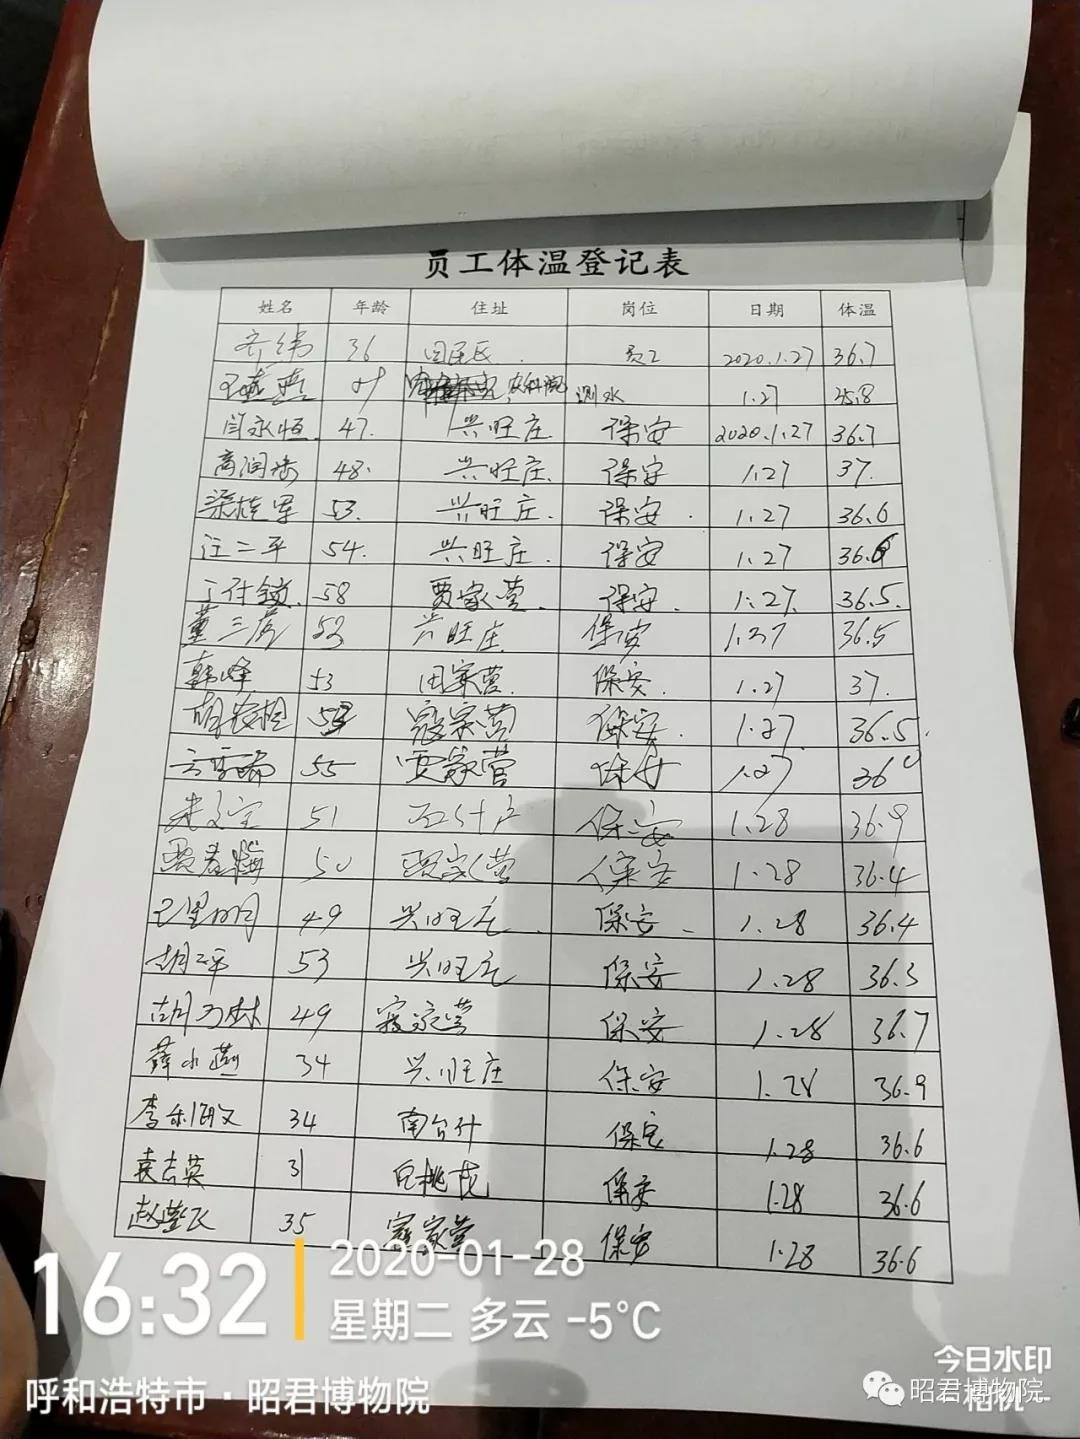 员工体温登记表
姓名 年龄 住址 岗位 日期 体温
齐伟 36 回民区 员工 2020.1.27 36.7
农科院 测水 1.27
闫永恒 47. 兴旺庄 保安 2020.1.27 36.7
高润 48. 兴旺庄. 保安 1.27 37.
梁桂军 53. 兴旺庄. 保安. 1.27 36.6
汪二平 54. 兴旺庄. 保安 1.27
58 贾家营. 保安. 1.27. 36.5.
董三 53 兴旺庄. 保安 1.27 36.5
韩峰 53 田家营. 保安. 1.27 37.
寇家营 保安. 1.27. 36.5.
55 贾家营 保安 1.27
51 保安 1.28 36.9
贾春梅 50 贾家营 保安 1.28 36.4
49 兴旺庄. 保安. 1.28 36.4
胡平 53 兴旺庄 保安 1.28 36.3
胡 林 49 寇家营 保安 1.28 36.7
薛小燕 34 兴旺庄 保安 1.28 36.9
李 34 南台什 保安 1.28 36.6
袁吉英 31 白桃花 保安 1.28 36.6
赵 35 寇家营 保安 1.28 36.6
16:32
2020-01-28
星期二 多云 -5°C
呼和浩特市·昭君博物院
今日水印
相机
昭君博物院